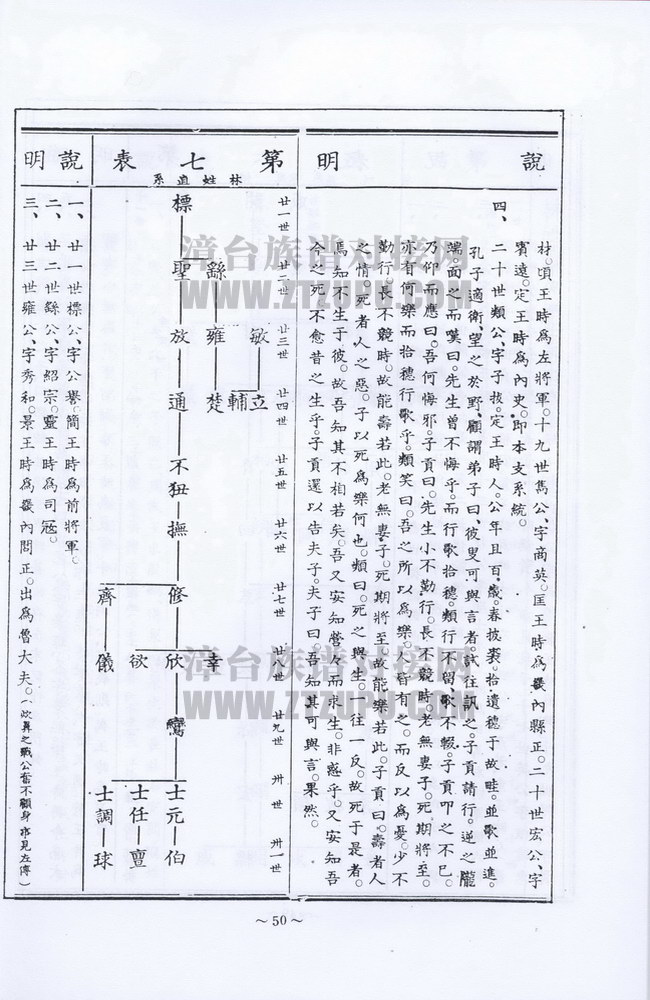 說明
材。頃王時爲左將軍。十九世雋公、字商英。匡王時爲畿內縣正。二十世宏公、字
賓遠。定王時爲內史。即本支系統。
四、二十世類公、字子拔。定王時人。公年且百歲。春披裘。拾遺穗于故畦。並歌並進。
孔子適衛、望之於野、顧謂弟子曰、彼叟可與言者。試往訊之。子貢請行。逆之隴
端。面之而嘆曰。先生曾不悔乎。而行歌拾穗。類行不留、歌不輟。子貢叩之不已。
乃仰而應曰。吾何悔邪。子貢曰。先生少不勤行。長不競時。老無妻子。死期將至。
亦有何樂而拾穗行歌乎。類笑曰。吾之所以爲樂。人皆有之。而反以爲憂。少不
勤行。長不競時。故能壽若此。老無妻子。死期將至。故能樂若此。子貢曰。壽者人
之情。死者人之惡。子以死爲樂何也。類曰。死之與生。一往一反。故死于是者。
焉知不生于彼。故吾知其不相若矣。吾又安知營々而求生。非惑乎。又安知吾
今之死不愈昔之生乎。子貢還以告夫子。夫子曰。吾知其可與言。果然。
第七表
林姓直系
廿一世 廿二世 廿三世 廿四世 廿五世 廿六世 廿七世 廿八世 廿九世 卅世 卅一世
標 聖 放 通 不狃 撫 修 欣 鸞 士元 伯
緜 雍 楚
敏 輔 立
齊 儀 欲 幸
士任 亶
士調 球
說明
一、廿一世標公、字公譽。簡王時爲前將軍。
二、廿二世緜公、字紹宗。靈王時爲司寇。
三、廿三世雍公、字秀和。景王時爲畿內閭正。出爲魯大夫。(炊鼻之戰公奮不顧身亦見左傳)
~50~
漳台族谱对接网
WWW.ZTZUPU.COM
漳台族谱对接网
WWW.ZTZUPU.COM